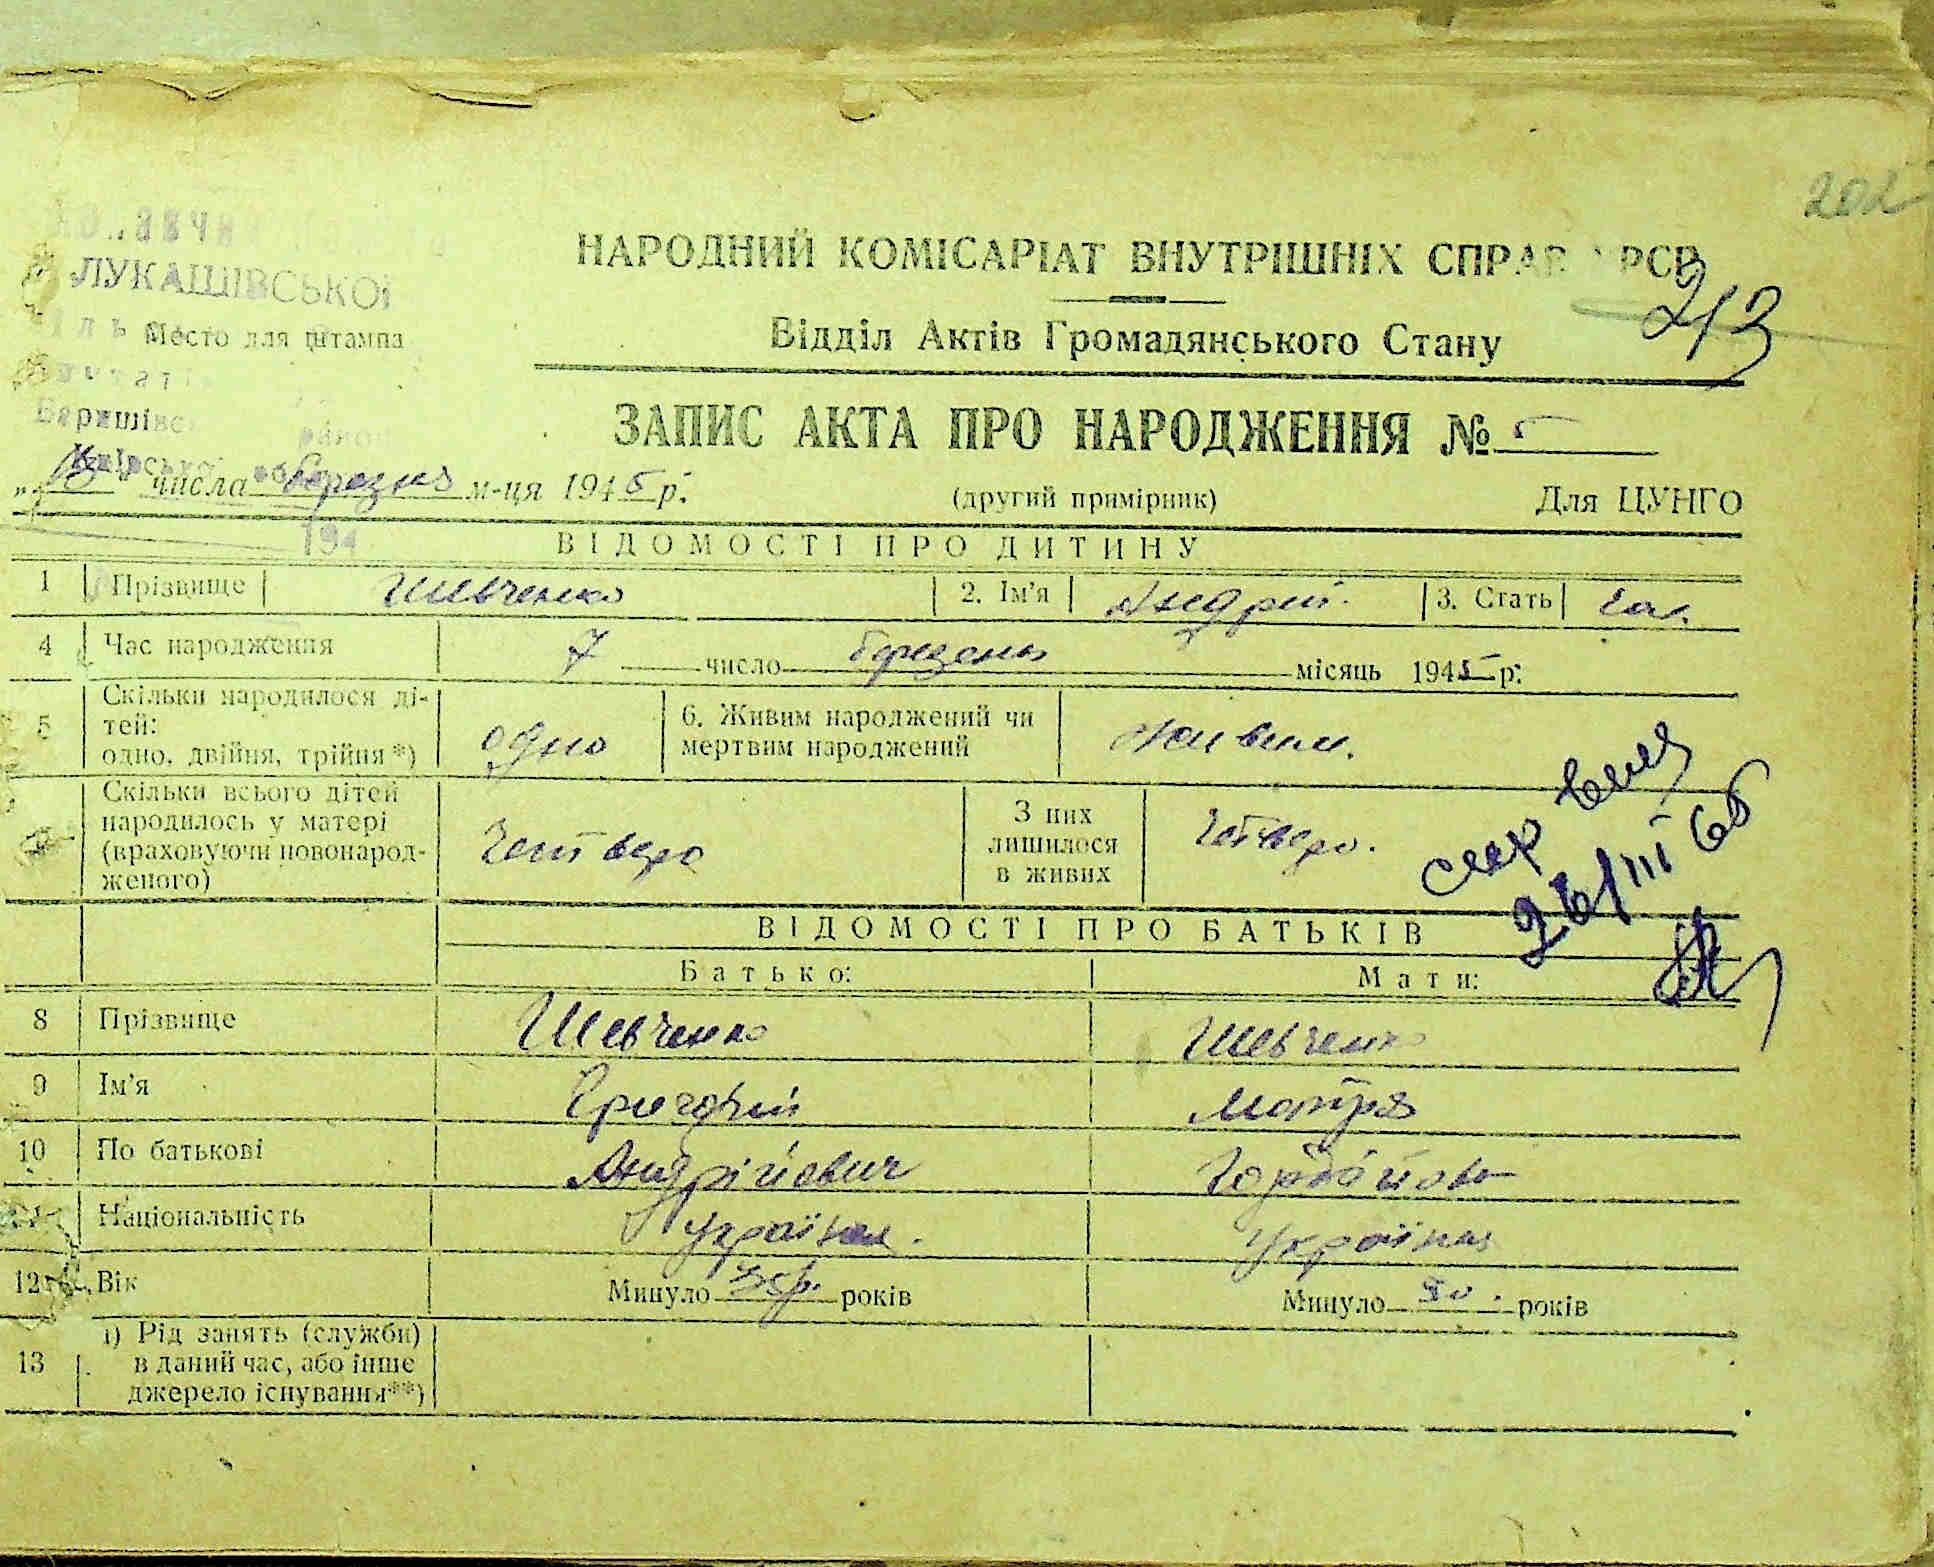 202
ЛУКАШІВСЬКОЇ
Место для штампа
НАРОДНИЙ КОМІСАРІАТ ВНУТРІШНІХ СПРАВ УРСР
213
Відділ Актів Громадянського Стану
ЗАПИС АКТА ПРО НАРОДЖЕННЯ № 5
числа березня м-ця 1945 р.
(другий примірник)
Для ЦУНГО
194
ВІДОМОСТІ ПРО ДИТИНУ
1 Прізвище Шевченко 2. Ім'я Андрій. 3. Стать чол.
4 Час народження 7 число березень місяць 1945 р.
5 Скільки народилося ді-
тей:
одно, двійня, трійня *) одно
6. Живим народжений чи
мертвим народжений живим.
Скільки всього дітей
народилось у матері
(враховуючи новонарод-
женого) четверо
З них
лишилося
в живих четверо.
26/III 66
ВІДОМОСТІ ПРО БАТЬКІВ
Батько: Мати:
8 Прізвище Шевченко Шевченко
9 Ім'я Григорій Мотря
10 По батькові Андрійович
Національність Україн. Українка
12 Вік Минуло років Минуло років
13 1) Рід занять (служби)
в даний час, або інше
джерело існування**)